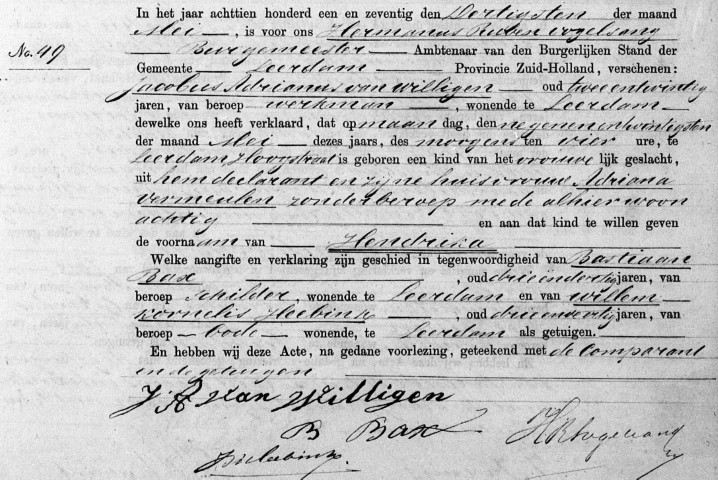 In het jaar achttien honderd een en zeventig den Dertigsten der maand
Mei, is voor ons Hermanus Ruben Vogelsang
No. 49
Burgemeester Ambtenaar van den Burgerlijken Stand der
Gemeente Leerdam Provincie Zuid-Holland, verschenen:
Jacobus Adrianus van Willigen oud twee en twintig
jaren, van beroep werkman, wonende te Leerdam
dewelke ons heeft verklaard, dat op maan dag, den negenentwintigsten
der maand Mei dezes jaars, des morgens ten vier ure, te
Leerdam, Hoogstraat is geboren een kind van het vrouwe lijk geslacht,
uit hem declarant en zijne huisvrouw Adriana
vermeulen zonder beroep mede alhier woon
achtig en aan dat kind te willen geven
de voornaam van Hendrika
Welke aangifte en verklaring zijn geschied in tegenwoordigheid van Bastiaan
Bax, oud drieëndertig jaren, van
beroep Schilder, wonende te Leerdam en van willem
kornelis, oud jaren, van
beroep bode wonende, te Leerdam als getuigen.
En hebben wij deze Acte, na gedane voorlezing, geteekend met de Comparant
en de getuigen
J A van Willigen
B Bax
HRVogelsang